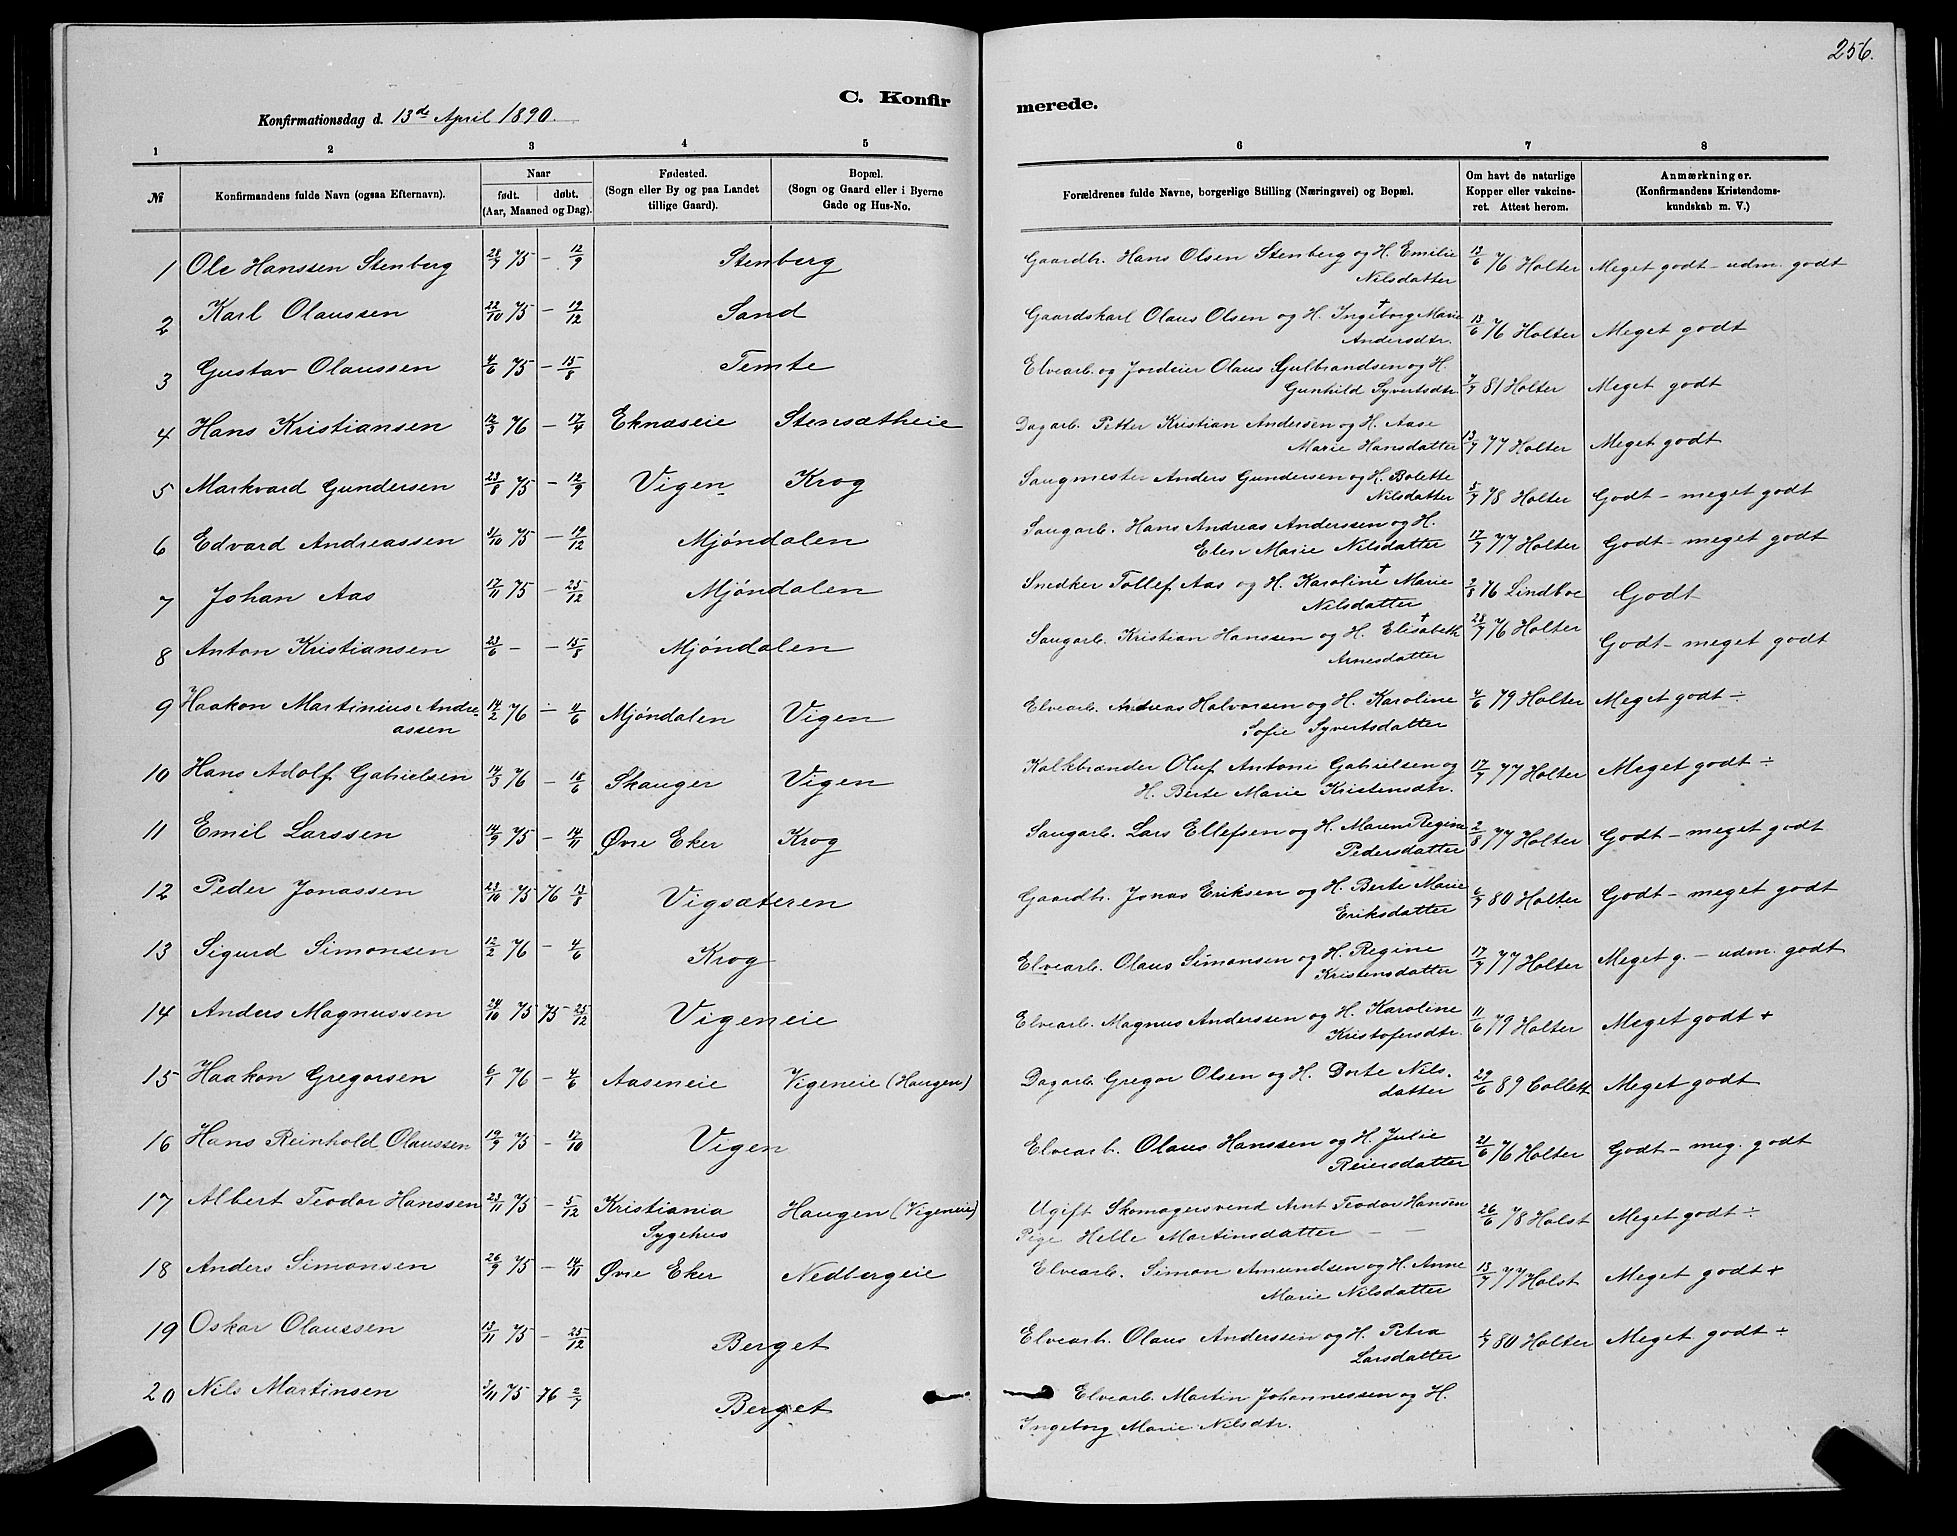 256.
C. Konfirmerede.
Konfirmationsdag d. 13de April 1890.
1 2 3 4 5 6 7 8
№ | Konfirmandens fulde Navn (ogsaa Efternavn). | Naar født. døbt. (Aar, Maaned og Dag). | Fødested. (Sogn eller By og paa Landet tillige Gaard). | Bopæl. (Sogn og Gaard eller i Byerne Gade og Hus-No. | Forældrenes fulde Navne, borgerlige Stilling (Næringsvei) og Bopæl. | Om havt de naturlige Kopper eller vakcineret. Attest herom. | Anmærkninger. (Konfirmandens Kristendomskundskab m. V.)
1 Ole Hanssen Stenberg 28/7 75 – 12/9 Stenberg Gaardb. Hans Olsen Stenberg og H. Emilie Nilsdatter 13/6 76 Holter Meget godt – udm. godt
2 Karl Olaussen 22/10 75 – 19/12 Sand Gaardskarl Olaus Olsen og H. Ingeborg † Marie Andersdtr. 13/6 76 Holter Meget godt
3 Gustav Olaussen 4/6 75 – 15/8 Temte Elvearb. og Jordeier Olaus Gulbrandsen og H. Gunhild Syvertsdtr 7/7 81 Holter Meget godt
4 Hans Kristiansen 12/3 76 – 17/4 Eknæseie Stensætheie Dagarb. Petter Kristian Andersen og H. Aase Marie Hansdatter 13/7 77 Holter Meget godt
5 Markvard Gundersen 23/8 75 – 12/9 Vigen Krog Saugmester Anders Gundersen og H. Bolette Nilsdatter 5/7 78 Holter Godt – meget godt
6 Edvard Andreassen 31/10 75 – 19/12 Mjøndalen Saugarb. Hans Andreas Anderssen og H. Elen Marie Nilsdatter 17/7 77 Holter Godt – meget godt
7 Johan Aas 17/11 75 – 25/12 Mjøndalen Snedker Tollef Aas og H. Karoline † Marie Nilsdatter 2/8 76 Lindboe Godt
8 Anton Kristiansen 23/6 – – 15/8 Mjøndalen Saugarb. Kristian Hanssen og H. Elisabeth † Arnesdatter 28/7 76 Holter Godt – meget godt
9 Haakon Martinius Andreassen 14/2 76 – 4/6 Mjøndalen Vigen Elvearb. Andreas Halvorsen og H. Karoline Sofie Syvertsdatter 4/6 79 Holter Meget godt ÷
10 Hans Adolf Gabrielsen 14/3 76 – 18/6 Skauger Vigen Kalkbrænder Oluf Antoni Gabrielsen og H. Berte Marie Kristensdtr. 17/7 77 Holter Meget godt ÷
11 Emil Larssen 14/9 75 – 14/11 Øvre Eker Krog Saugarb. Lars Ellefsen og H. Maren Regine Pedersdatter 2/8 77 Holter Godt – meget godt
12 Peder Jonassen 23/10 75 76 13/8 Vigsæteren Gaardbr. Jonas Eriksen og H. Berte Marie Eriksdatter 6/7 80 Holter Godt – meget godt
13 Sigurd Simonsen 12/2 76 – 4/6 Krog Elvearb. Olaus Simonsen og H. Regine Kristensdatter 17/7 77 Holter Meget g. – udm. godt
14 Anders Magnussen 24/10 75 75 25/12 Vigeneie Elvearb. Magnus Anderssen og H. Karoline Kristofersdtr. 11/6 79 Holter Meget godt +
15 Haakon Gregorsen 6/1 76 – 4/6 Aaseneie Vigeneie (Haugen) Dagarb. Gregor Olsen og H. Dorte Nilsdatter 29/6 89 Collett Meget godt
16 Hans Reinhold Olaussen 19/9 75 – 17/10 Vigen Elvearb. Olaus Hanssen og H. Julie Reiersdatter 21/6 76 Holter Godt – meg. godt
17 Albert Teodor Hanssen 23/11 75 – 5/12 Kristiania Sygehus Haugen (Vigeneie) Ugift Skomagersvend Arnt Teodor Hansen Pige Helle Martinsdatter – – 26/6 78 Holst Meget godt ÷
18 Anders Simonsen 26/9 75 – 14/11 Øvre Eker Nedbergeie Elvearb. Simon Amundsen og H. Anne Marie Nilsdatter 13/7 77 Holst Meget godt +
19 Oskar Olaussen 13/11 75 – 25/12 Berget Elvearb. Olaus Anderssen og H. Petra Larsdatter 80 Holter Meget godt ÷
20 Nils Martinsen 75 76 2/7 Berget Elvearb. Martin Johannessen og H. Ingeborg Marie Nilsdtr.